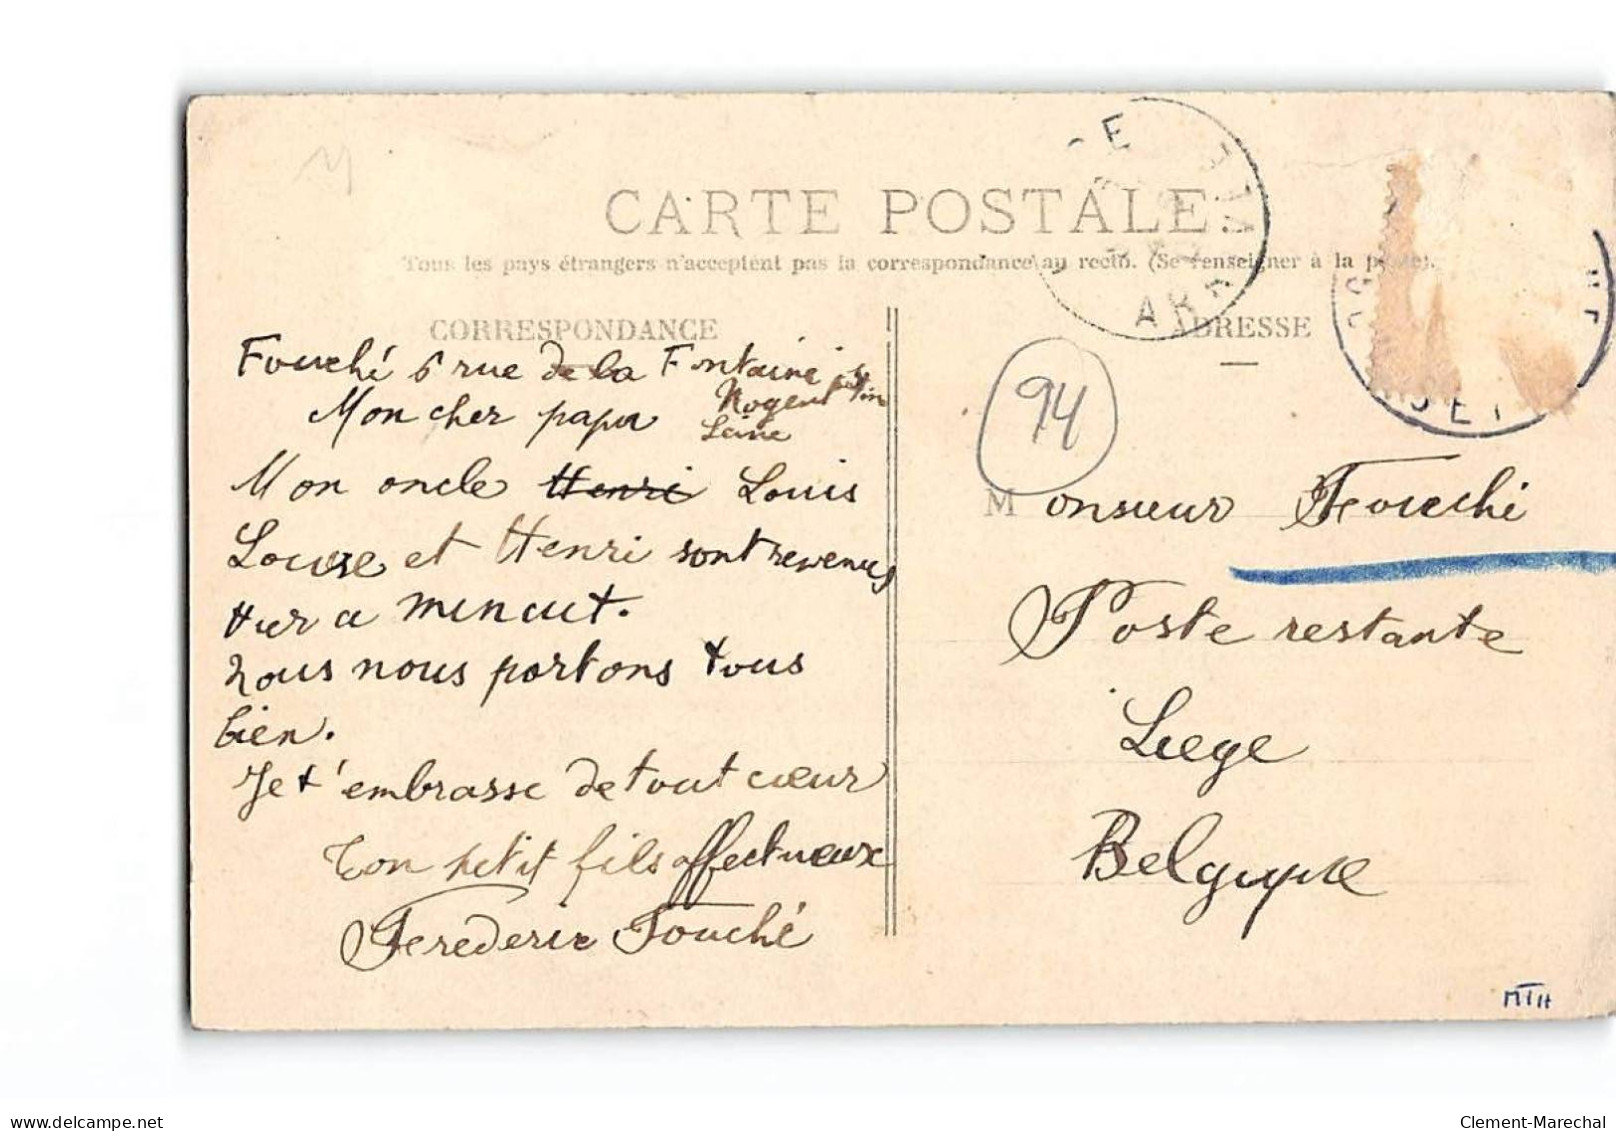 CARTE POSTALE
Tous les pays étrangers n'acceptent pas la correspondance au recto. (Se renseigner à la poste).
CORRESPONDANCE
ADRESSE
Fouché 6 rue de la Fontaine
Nogent
Seine
Mon cher papa
Mon oncle Henri Louis
Louise et Henri sont revenus
hier a minuit.
nous nous portons tous
bien.
Je t'embrasse de tout cœur
Ton petit fils affectueux
Frederic Fouché
94
Monsieur Fouché
Poste restante
Liege
Belgique
MTH
delcampe.net
Clement-Marechal